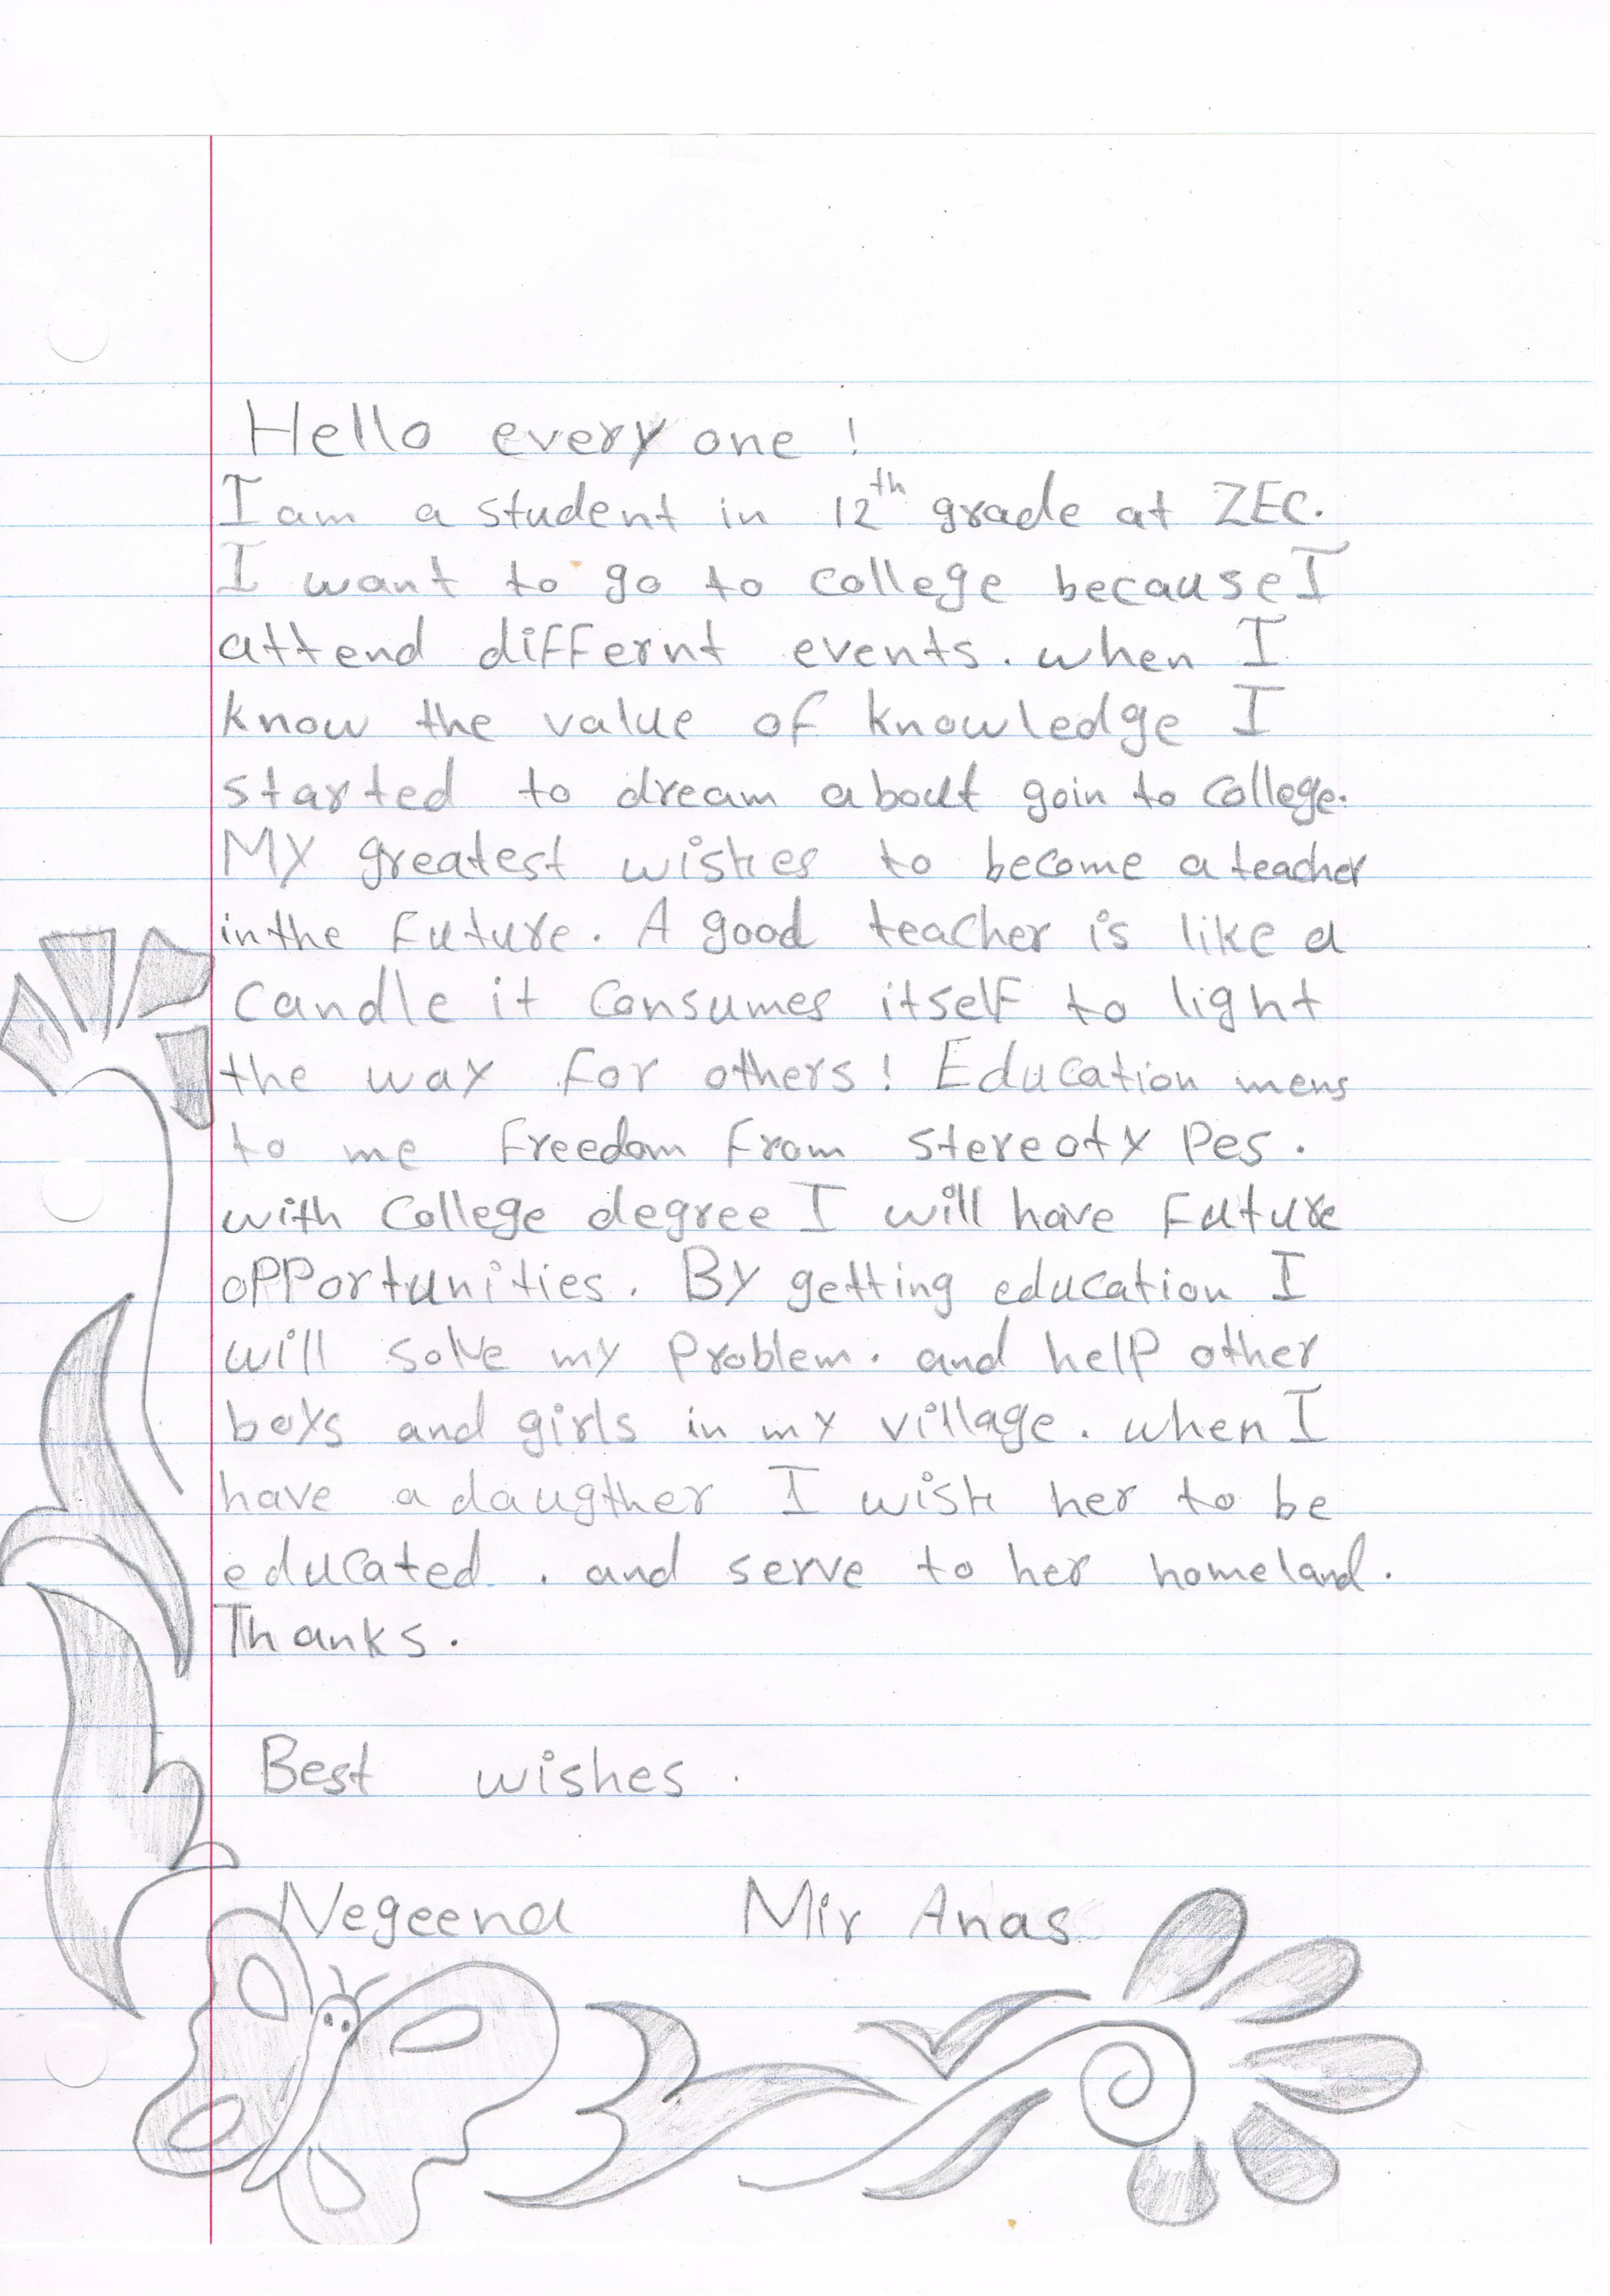 Hello every one !
I am a student in 12th grade at ZEC.
I want to go to college because I
attend differnt events. when I
know the value of knowledge I
started to dream about goin to college.
My greatest wishes to become a teacher
in the future. A good teacher is like a
candle it consumes itself to light
the way for others! Education mens
to me freedom from stereoty pes.
with college degree I will have future
opportunities. By getting education I
will solve my problem. and help other
boys and girls in my village. when I
have a daugther I wish her to be
educated. . and serve to her homeland.
Thanks.
Best wishes.
Negeena Mir Anas